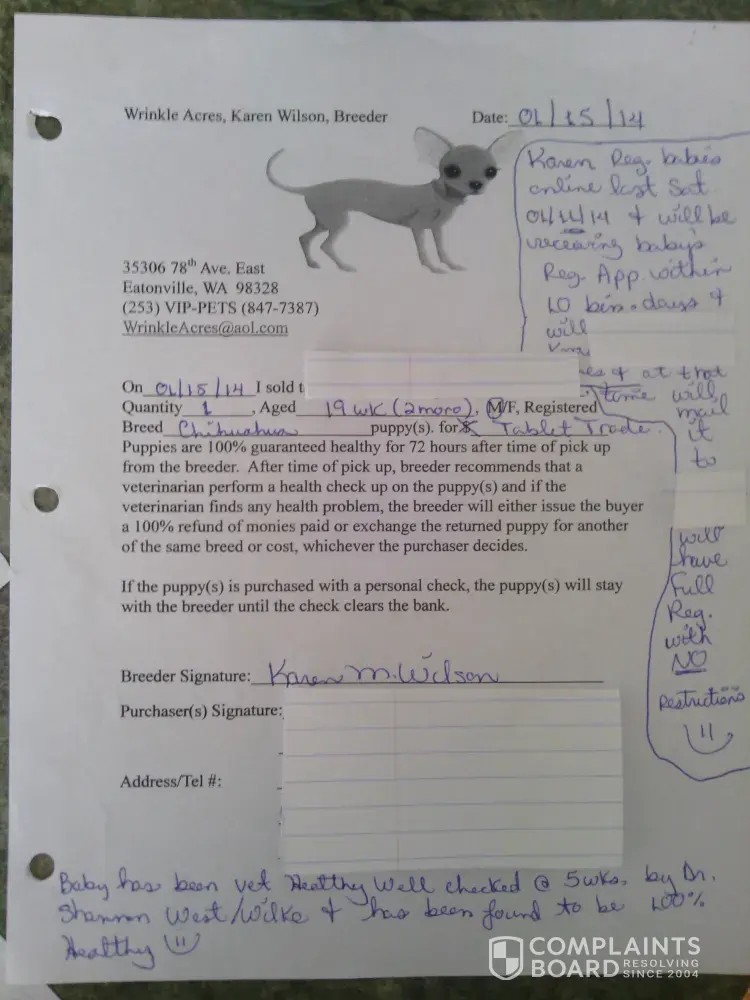 Wrinkle Acres, Karen Wilson, Breeder
Date: 01/15/14
Karen Reg. babies
online last Sat
01/11/14 & will be
receiving baby's
Reg. App within
10 bis. days &
will
es & at that
time will
mail
it
to
will
have
Full
Reg.
with
NO
Restrictions
35306 78th Ave. East
Eatonville, WA 98328
(253) VIP-PETS (847-7387)
WrinkleAcres@aol.com
On 01/15/14 I sold t
Quantity 1, Aged 19 wk (2moro), M/F, Registered
Breed Chihuahua puppy(s). for $ Tablet Trade.
Puppies are 100% guaranteed healthy for 72 hours after time of pick up
from the breeder. After time of pick up, breeder recommends that a
veterinarian perform a health check up on the puppy(s) and if the
veterinarian finds any health problem, the breeder will either issue the buyer
a 100% refund of monies paid or exchange the returned puppy for another
of the same breed or cost, whichever the purchaser decides.
If the puppy(s) is purchased with a personal check, the puppy(s) will stay
with the breeder until the check clears the bank.
Breeder Signature: Karen M. Wilson
Purchaser(s) Signature:
Address/Tel #:
Baby has been vet Healthy Well checked @ 5wks. by Dr.
Shannon West/Wilke & has been found to be 100%
Healthy
COMPLAINTS
BOARD RESOLVING
SINCE 2004